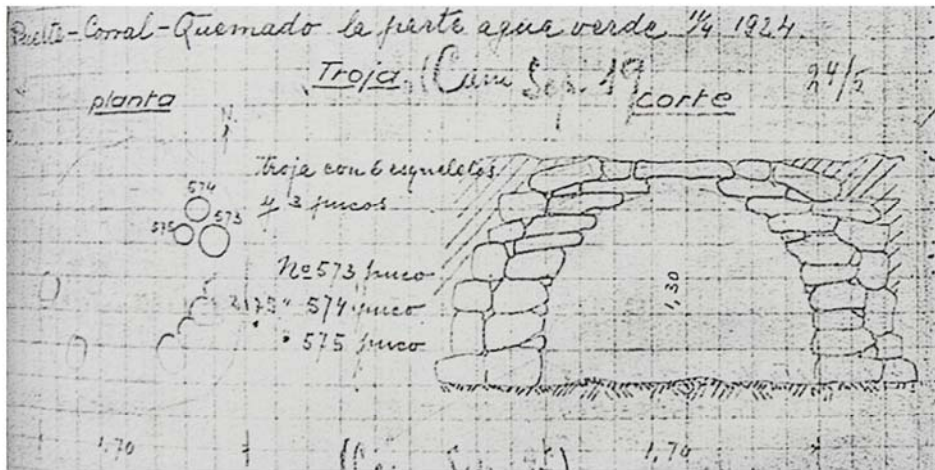 Puerta-Corral-Quemado la parte agua verde 11/4 1924.
Troja. 24/5
planta
corte
N.
Troja con 6 esqueletos
y 3 pucos
574
573
575
Nº 573 puco
" 574 puco
" 575 puco
1,30
1,70
1,70